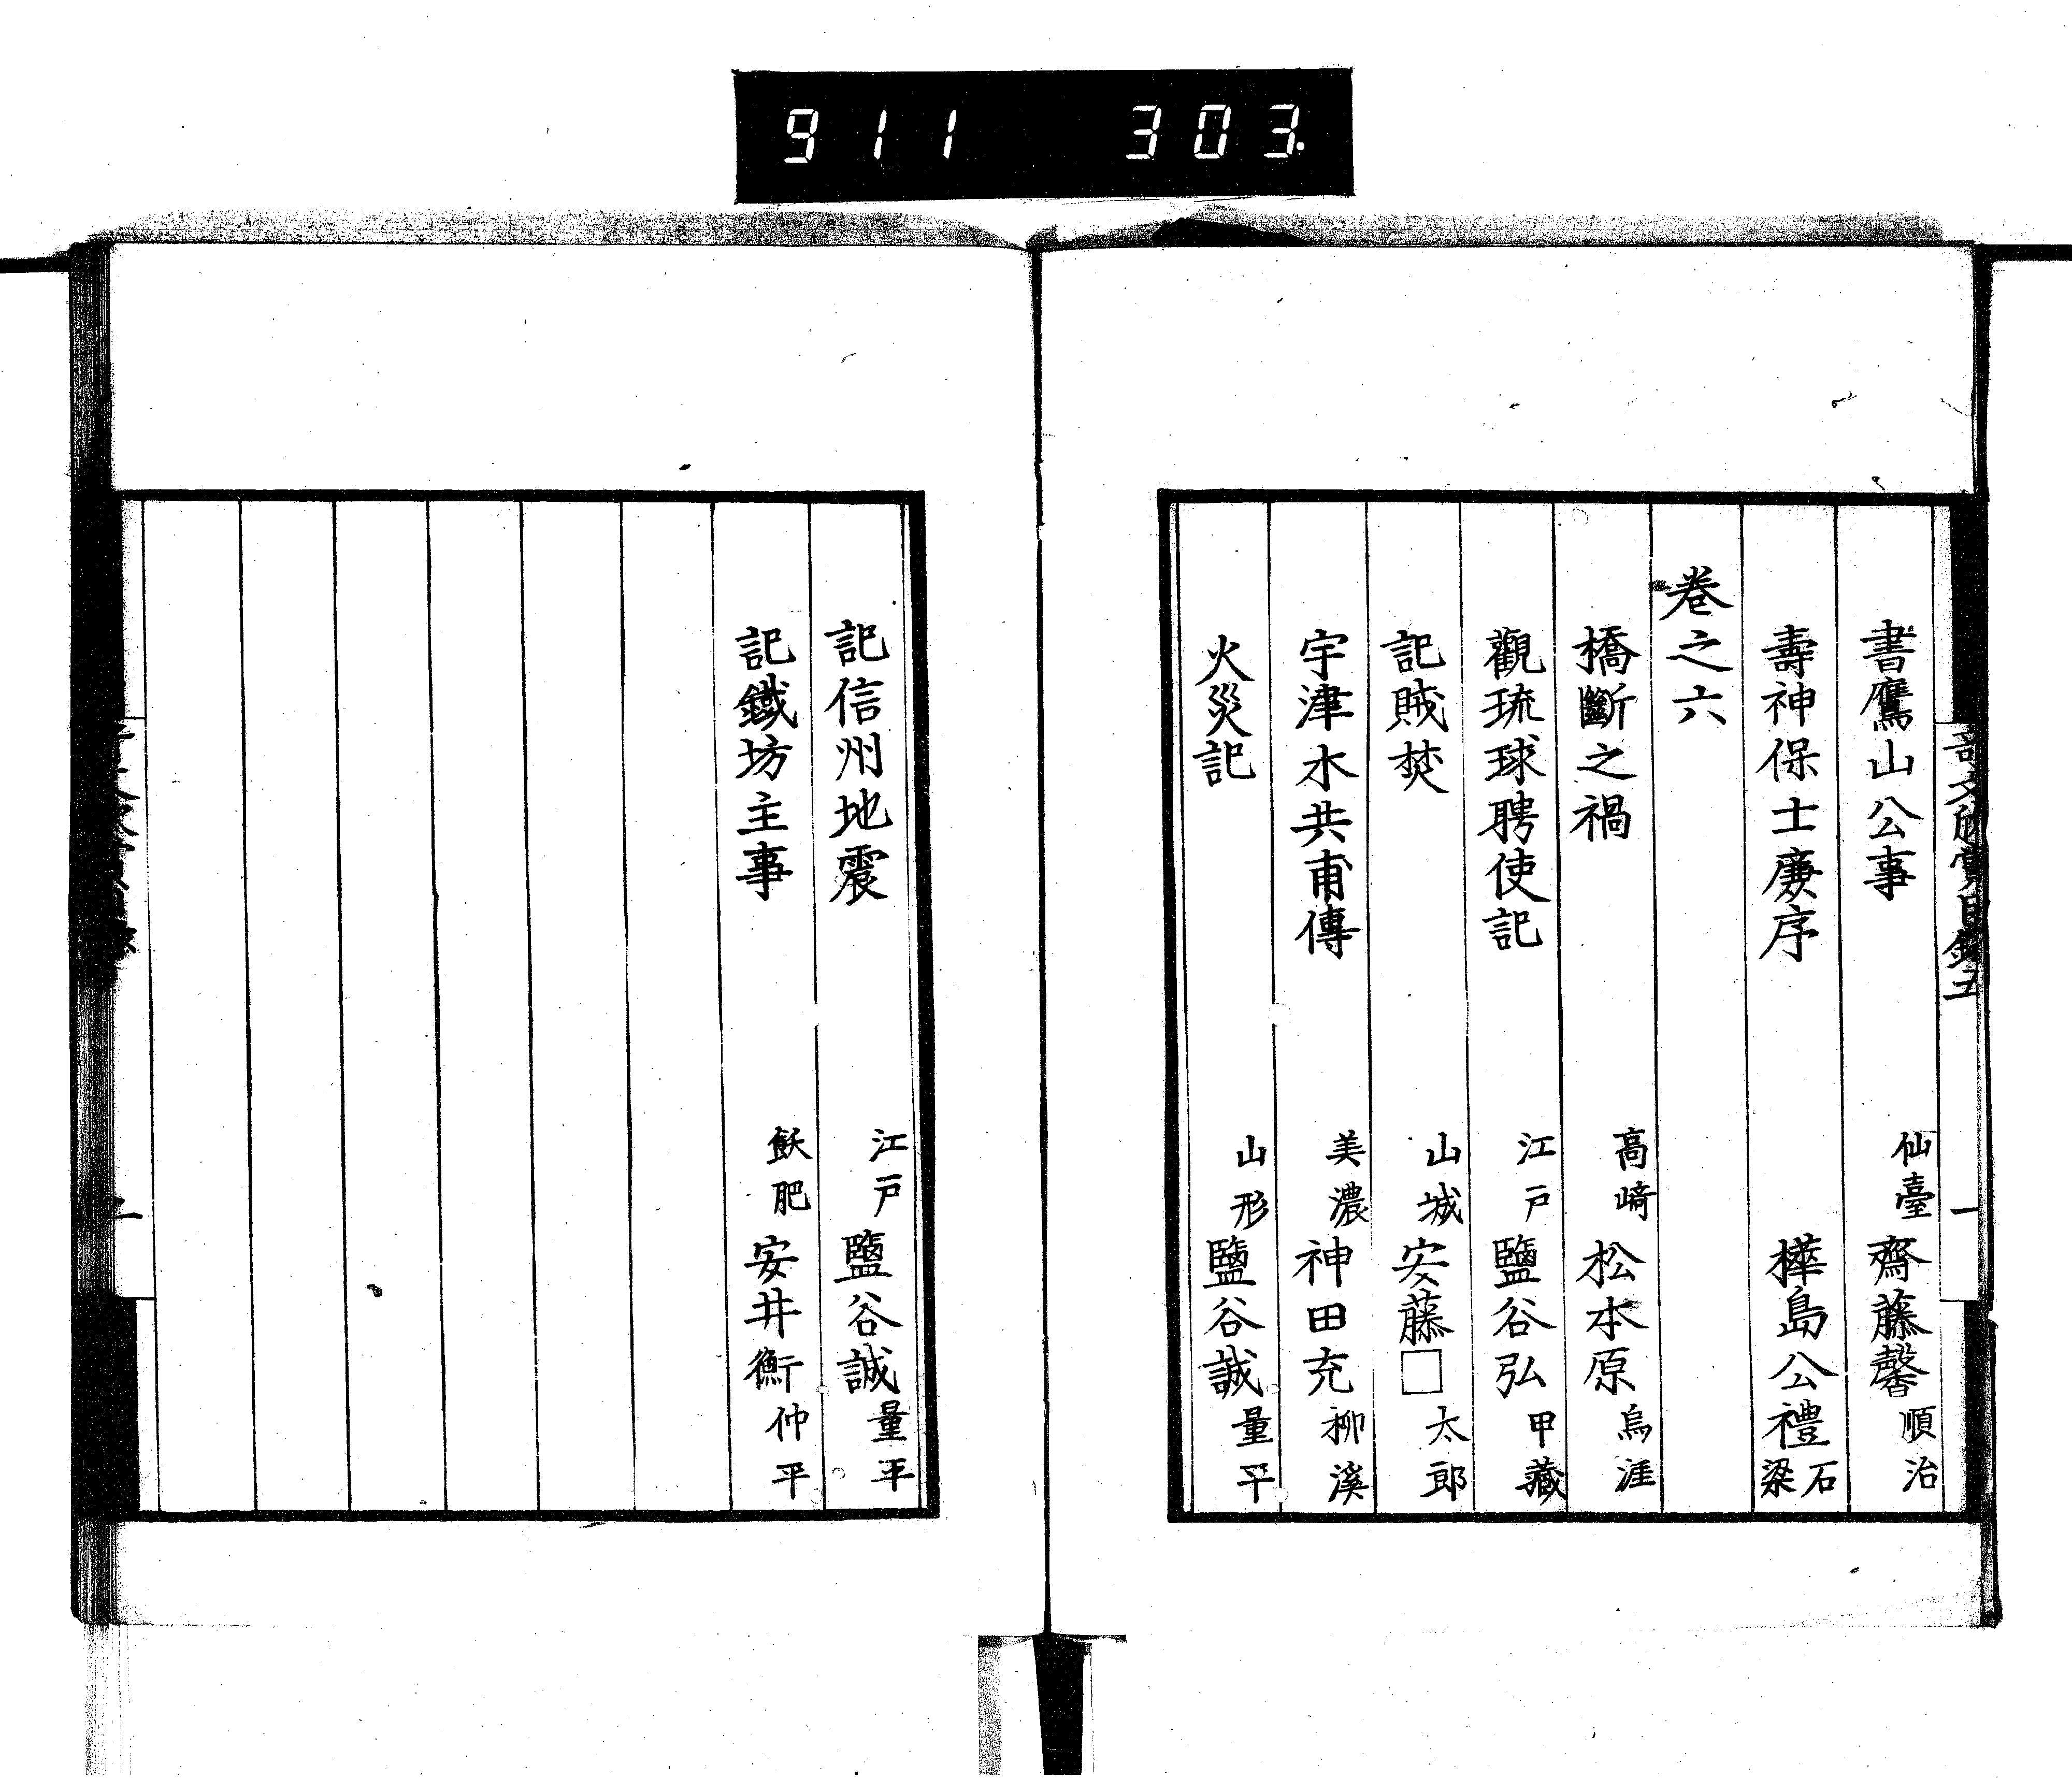 911 303.
書鷹山公事 仙臺 齋藤馨 順治
壽神保士廉序 樺島公禮 石梁
卷之六
橋斷之禍 高﨑 松本原 烏涯
觀琉球聘使記 江戸 鹽谷弘 甲藏
記賊焚 山城 安藤□ 太郎
宇津木共甫傳 美濃 神田充 柳溪
火災記 山形 鹽谷誠 量平
記信州地震 江戸 鹽谷誠 量平
記鐵坊主事 飫肥 安井衡 仲平